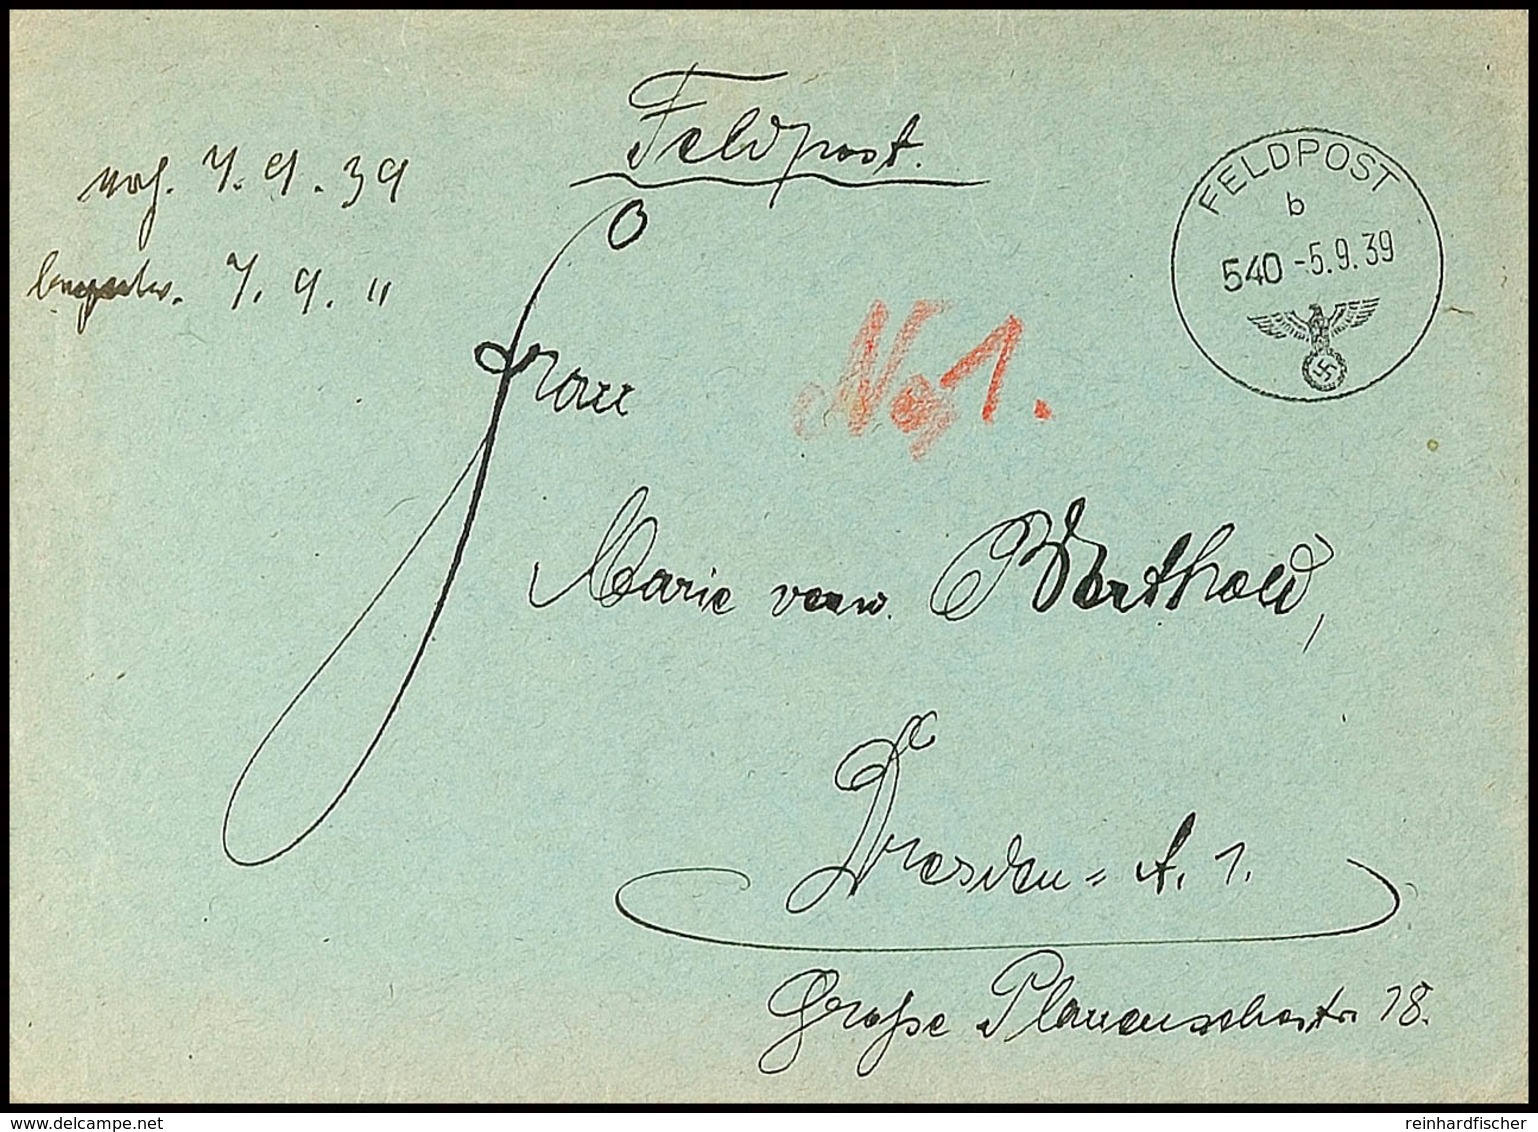 Feldpost.
7. 9. 39
7. 9. "
FELDPOST
b
540 -5.9.39
Frau
No 1.
Marie verw. Berthold,
Dresden = A. 1.
Große Plauenschestr. 18.
delcampe.net
reinhardfischer